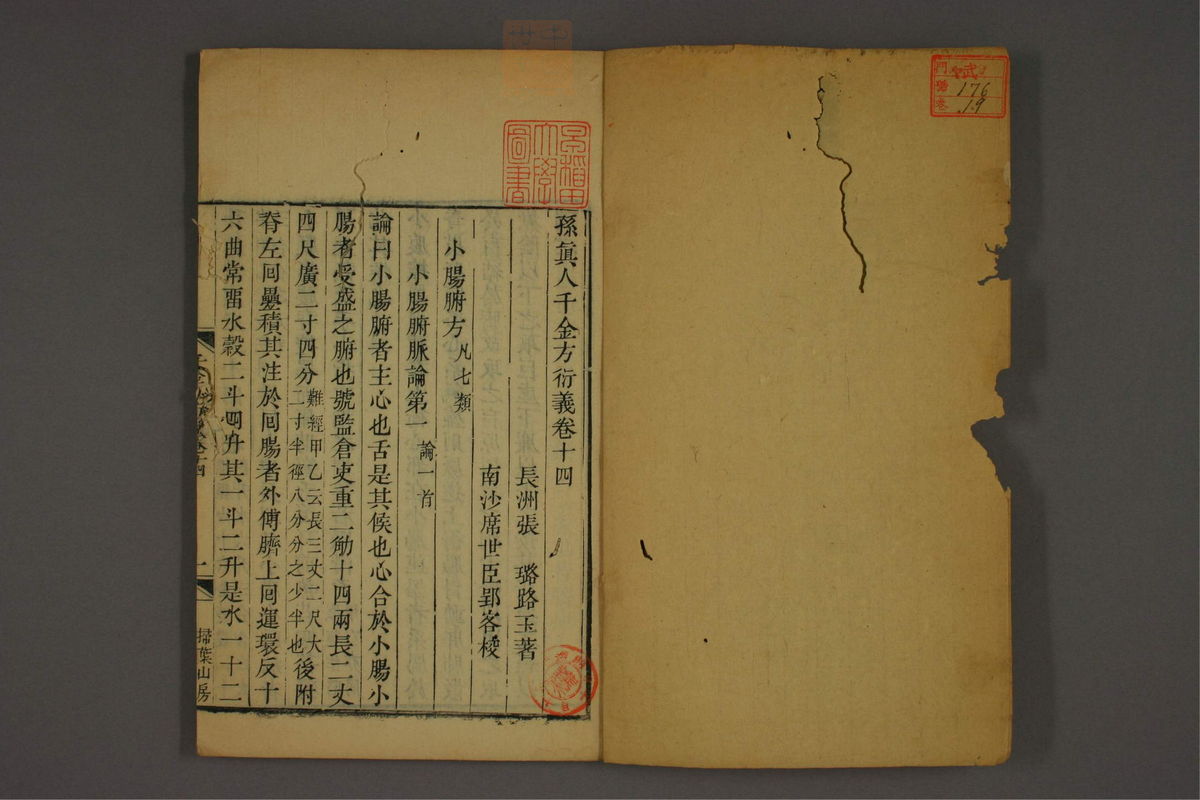 武
門
號
卷
176
19
早稲田
大學
圖書
孫眞人千金方衍義卷十四
長洲張 璐路玉著
南沙席世臣郢客校
小腸腑方凡七類
小腸腑脈論第一論一首
論曰小腸腑者主心也舌是其候也心合於小腸小
腸者受盛之腑也號監倉吏重二觔十四兩長二丈
四尺廣二寸四分難經甲乙云長三丈二尺大二寸半徑八分分之少半也後附
脊左囘疊積其注於囘腸者外傅臍上囘運環反十
六曲常畱水穀二斗四升其一斗二升是水一十二
十四
一
掃葉山房